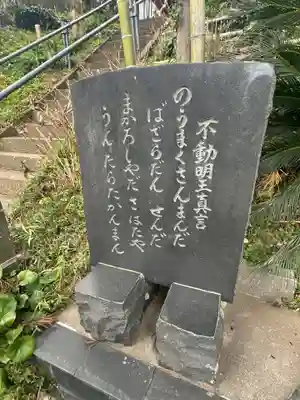 不動明王真言
のうまくさんまんだ
ばざらだん せんだ
まかろしやだ さはたや
うんたらた かんまん